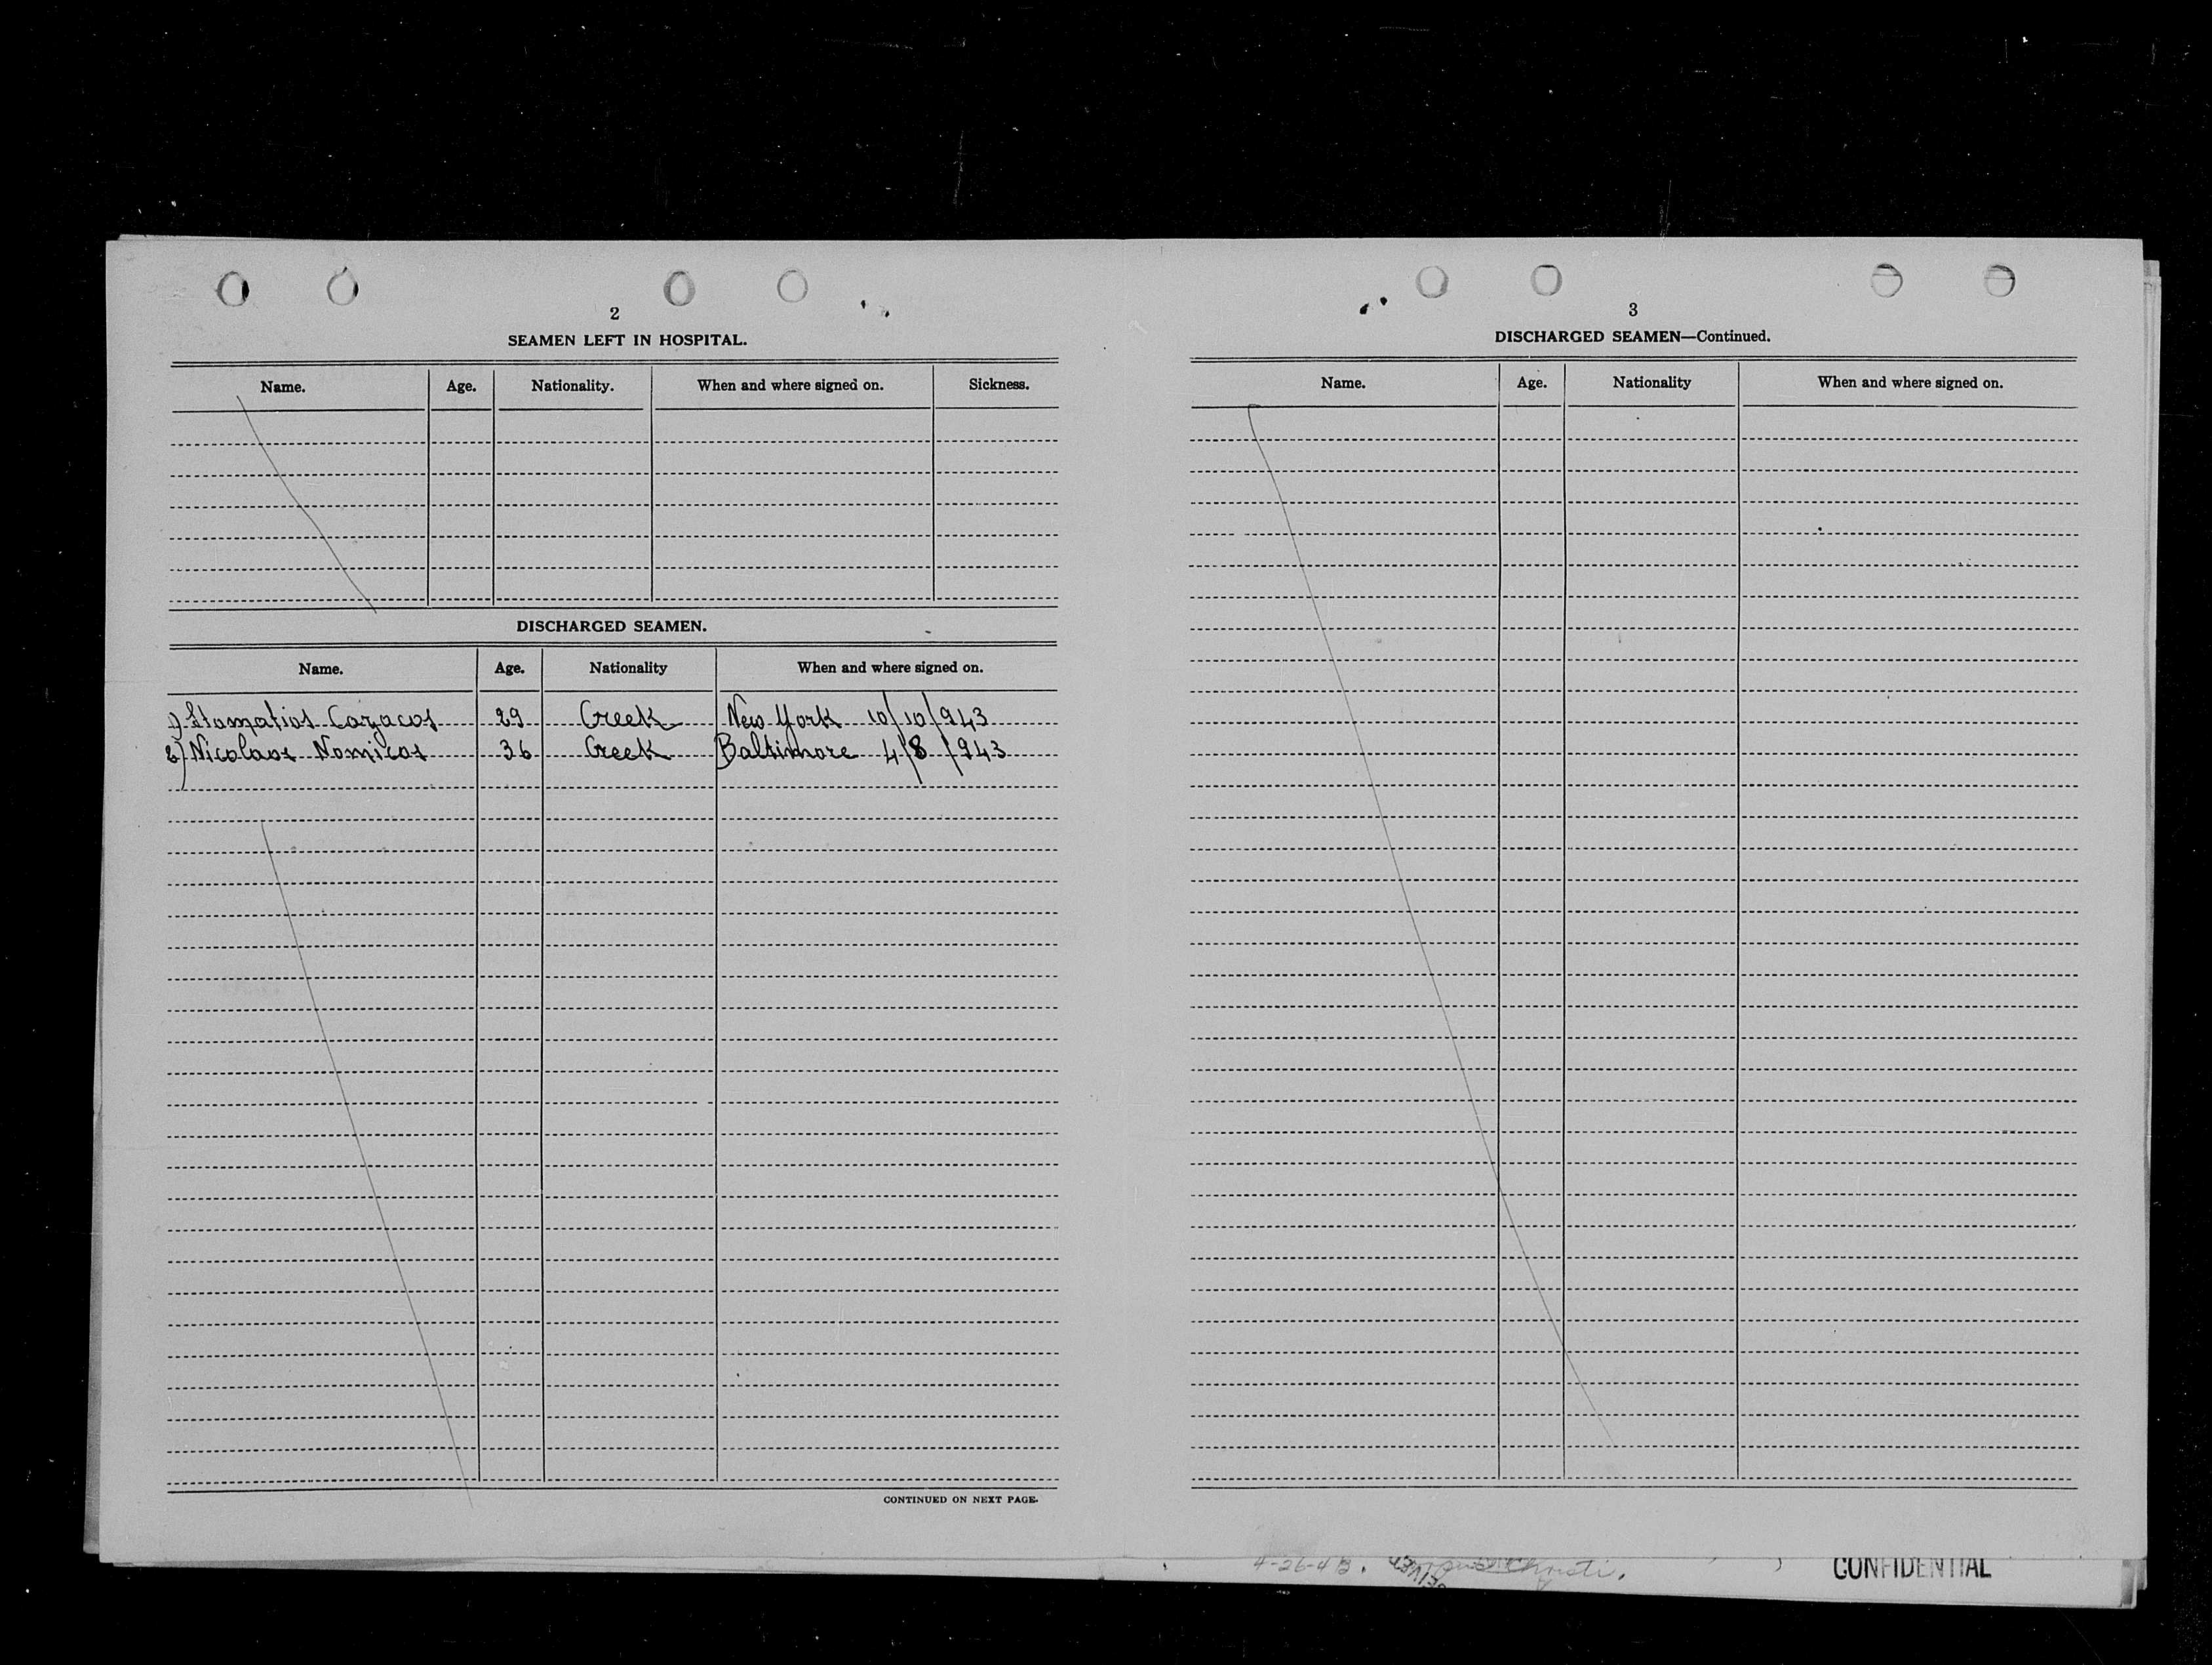 2
SEAMEN LEFT IN HOSPITAL.
Name. Age. Nationality. When and where signed on. Sickness.
DISCHARGED SEAMEN.
Name. Age. Nationality When and where signed on.
1) Stamatios Cazacos 29 Greek New York 10/10/943
2) Nicolaos Nomicos 36 Greek Baltimore 4/8/943
CONTINUED ON NEXT PAGE.
3
DISCHARGED SEAMEN—Continued.
Name. Age. Nationality When and where signed on.
4-26-43. Christi.
CONFIDENTIAL